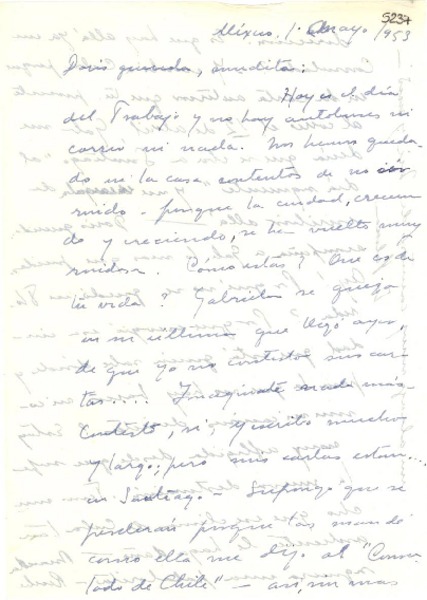 5237
México, 1. Mayo, 1953
Doris querida, bendita:
Hoy es el día
del Trabajo y no hay autobuses ni
correo ni nada. Nos hemos queda-
do en la casa, contentos de no oír
ruido – porque la ciudad, crecien
do y creciendo, se ha vuelto muy
ruidosa. Cómo estás? Que es de
tu vida? Gabriela se queja
en su última que llegó ayer,
de que yo no contesto sus car-
tas.... Imagínate nada más.
Contesté, sí, y escrito mucho
y largo; pero mis cartas estan...
en Santiago – Supongo que se
perderán porque las mandé
como ella me dijo al "Consu
lado de Chile" – así, no más